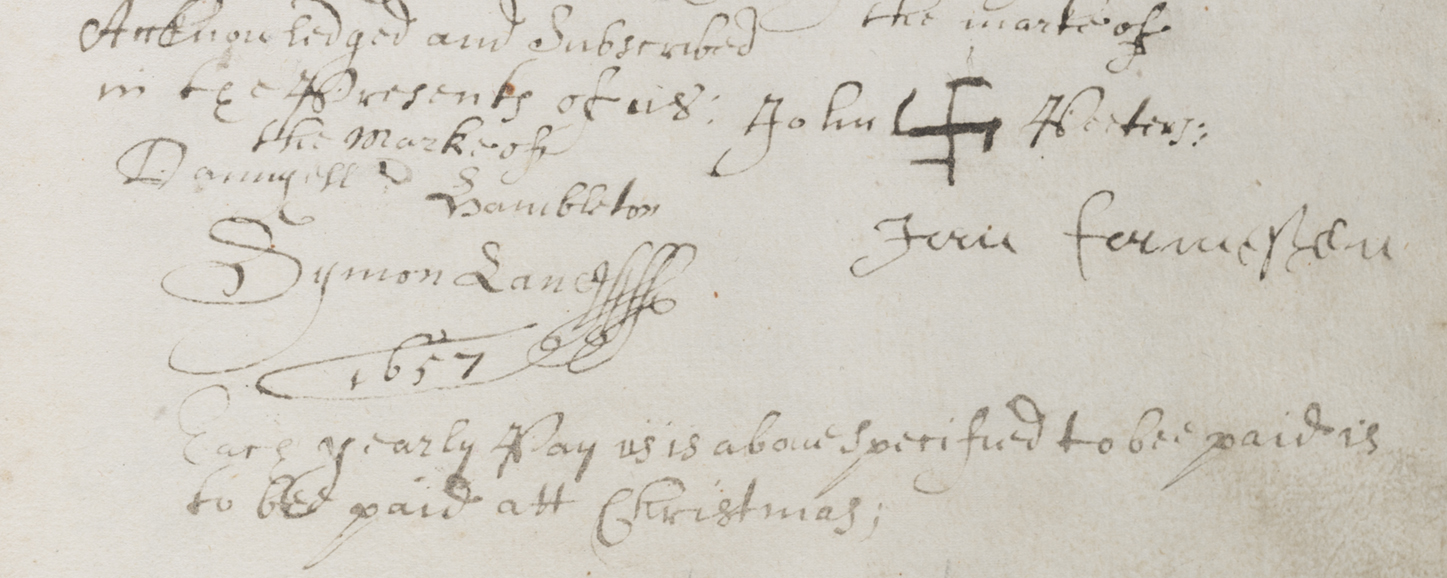 Acknowledged and Subscribed
in the Presents of us:
the Marke of
Daniyell D Hambleton
Symon Lane
1657
the marke of
John Peeters:
Each yearly Pay as is aboue specified to bee paid is
to bee paid att Christmas;